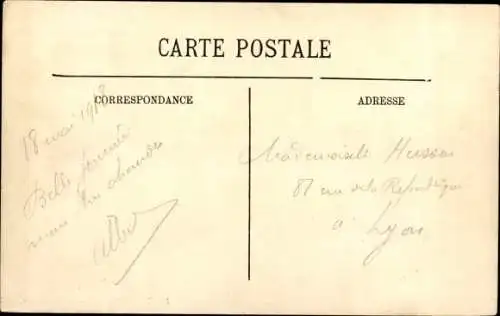 CARTE POSTALE
CORRESPONDANCE
18 mai 1918
Belle journée
mais très chaude
ADRESSE
Mademoiselle
81 rue de la République
à Lyon